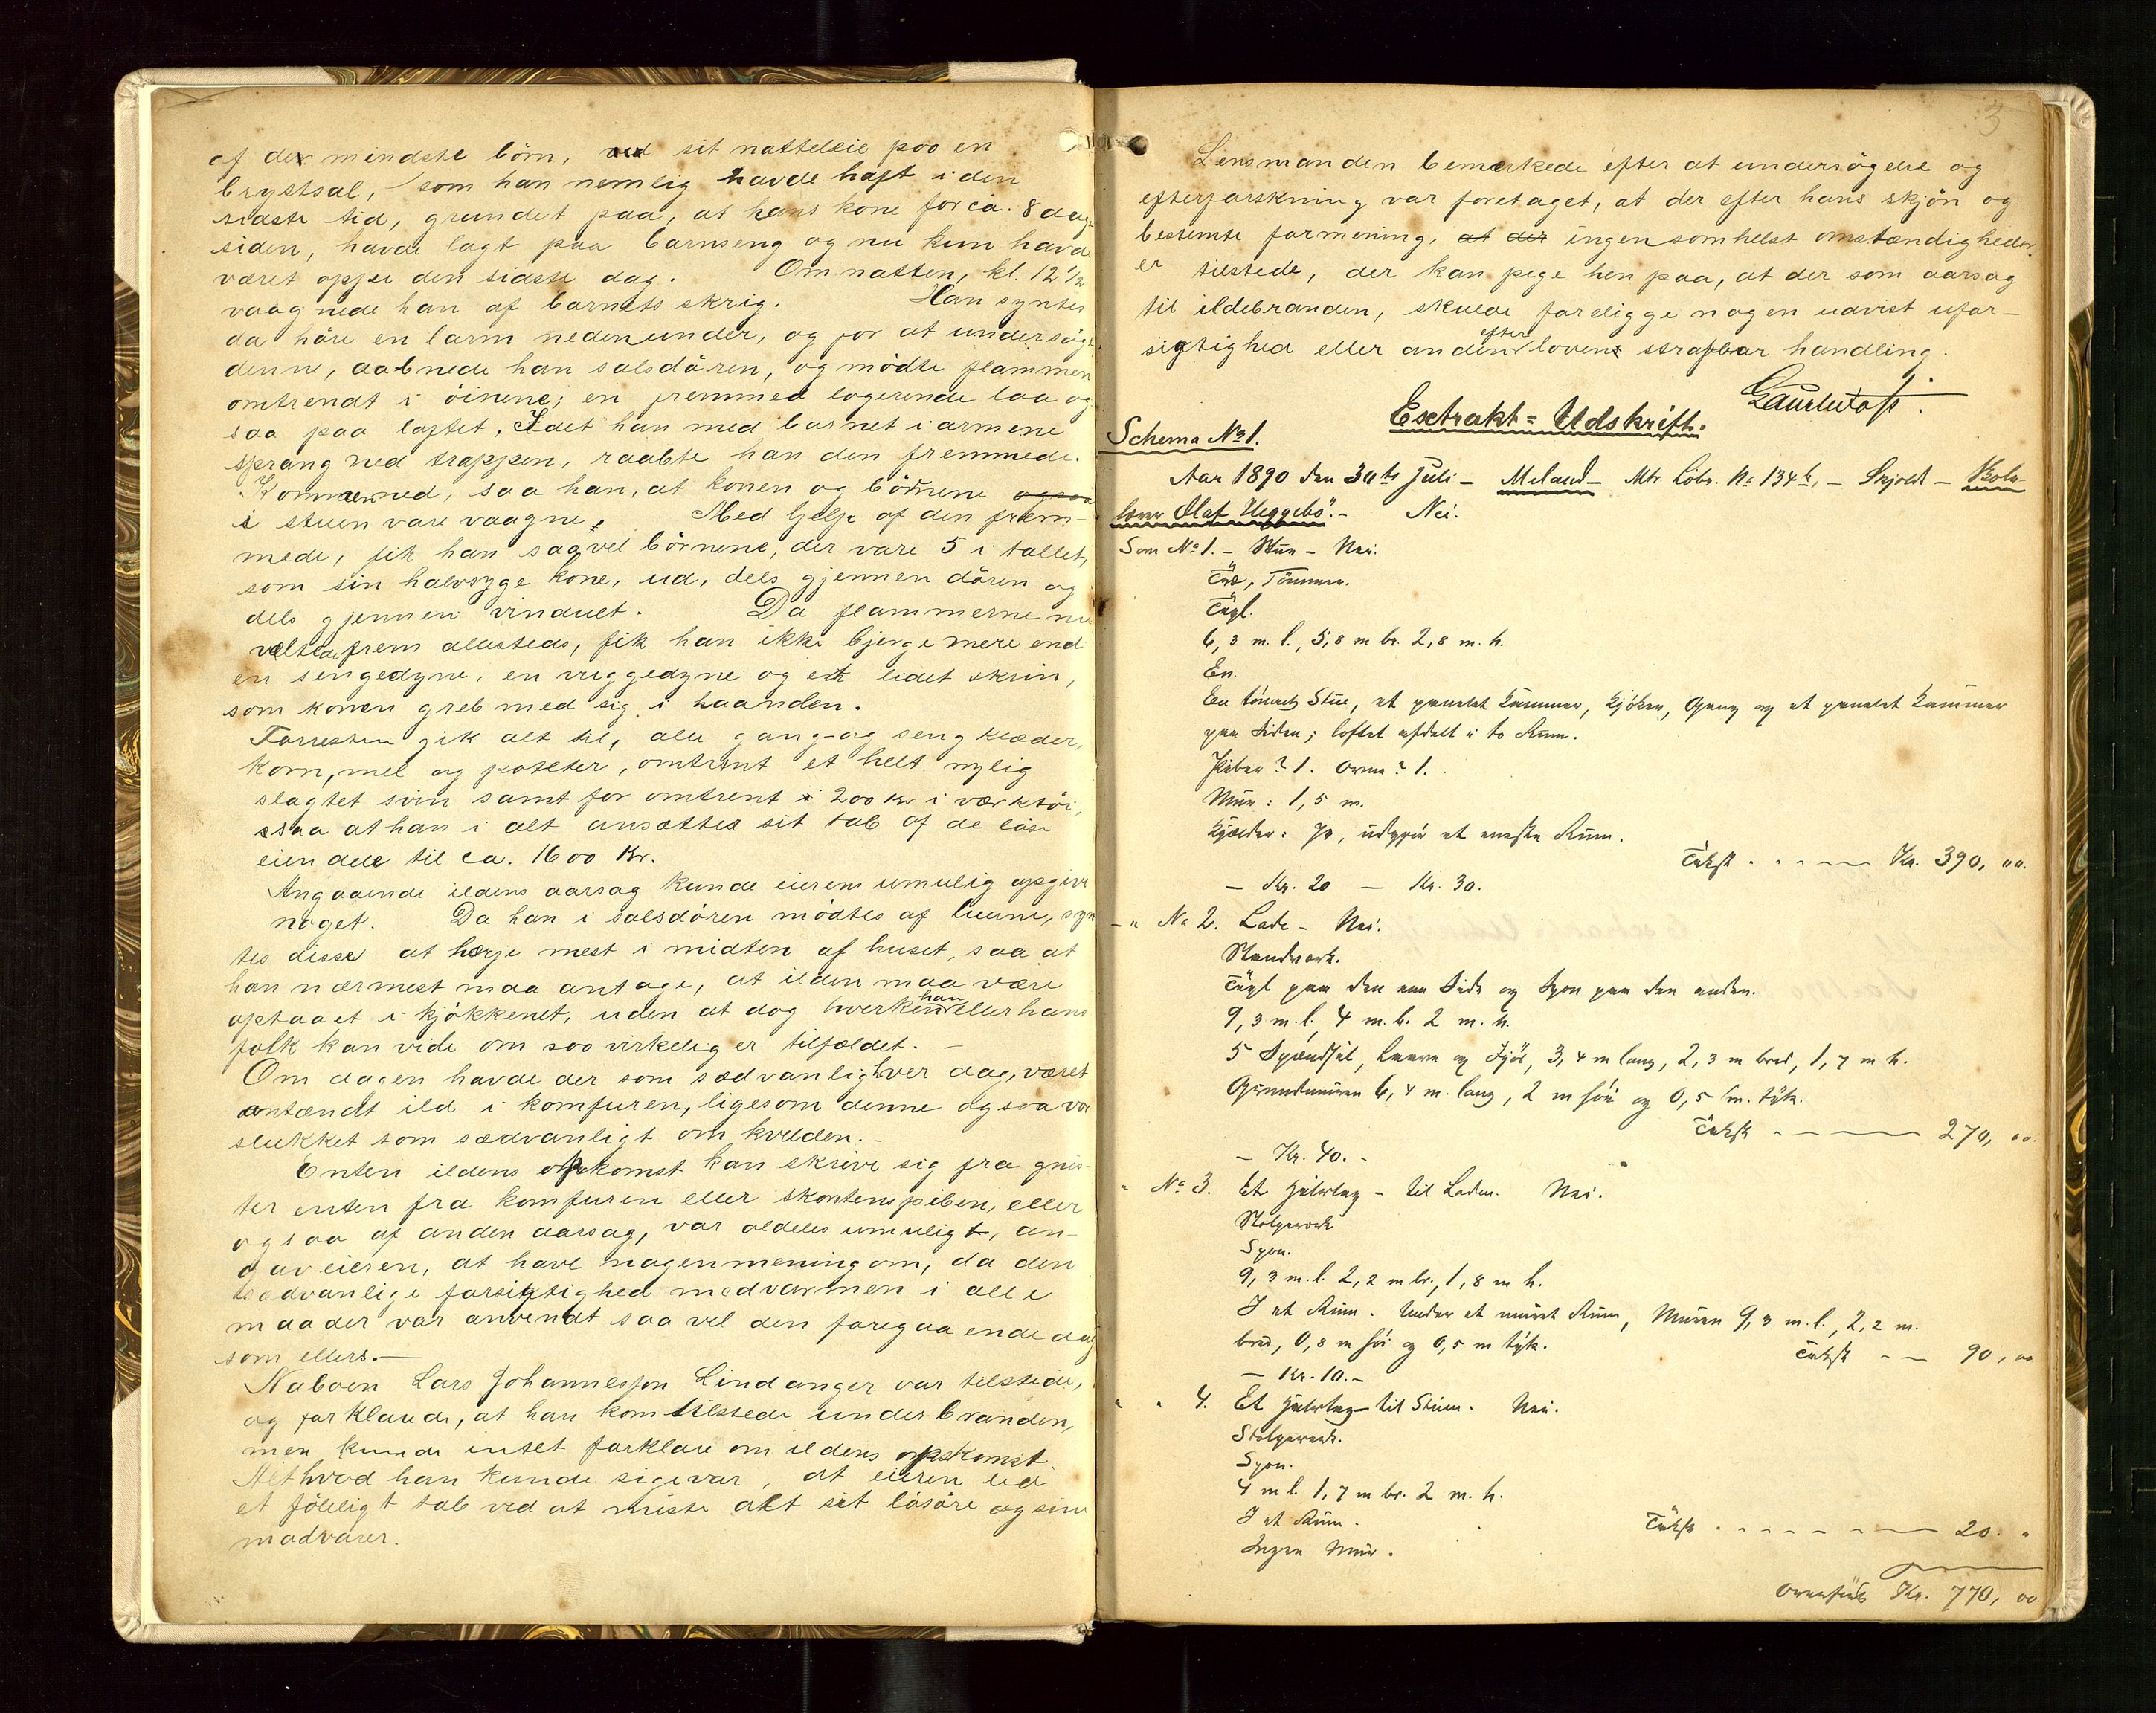 af de mindste börn, ved sit natteleie paa en
brystsal, som han nemlig havde haft i den
sidste tid, grundet paa, at hans kone for ca. 8 dage
siden, havde lagt paa barnseng og nu kun havde
været oppe den sidste dag. Om natten, kl. 12 1/2
vaagnede han af barnets skrig. Han syntes
da höre en larm nedenunder, og for at undersöge
denne, aabnede han salsdören, og mödte flammen
omtrendt i öinene; en fremmed logerende laa og
saa paa loftet. Idet han med barnet i armene
sprang ned trappen, raabte han den fremmede.
Kommen ned, saa han, at konen og börnene ogsaa
i stuen vare vaagne. Med hjelp af den frem-
mede, fik han saavel börnene, der vare 5 i tallet,
som sin halvsyge kone, ud, dels gjennem dören og
dels gjennem vinduet. Da flammerne nu
veltede frem allesteds, fik han ikke bjerge mere end
en sengedyne, en vuggedyne og et lidet skrin,
som konen greb med sig i haanden.
Forresten gik alt til, alle gang- og sengklæder,
korn, mel og poteter, omtrent et helt nylig
slagtet svin samt for omtrent 200 Kr i værktöi,
saa at han i alt ansætter sit tab af de löse
eiendele til ca. 1600 Kr.
Angaaende ildens aarsag kunde eieren umulig opgive
noget. Da han i salsdören mödtes af luerne, syn
tes disse at herje mest i midten af huset, saa at
han nærmest maa antage, at ilden maa være
opstaaet i kjökkenet, uden at dog hverken han eller hans
folk kan vide om saa virkelig er tilfældet. —
Om dagen havde der som sædvanlig hver dag, været
antændt ild i komfuren, ligesom denne ogsaa var
slukket som sædvanligt om kvelden. —
Enten ildens opkomst kan skrive sig fra gnis-
ter enten fra komfuren eller skorstenspiben, eller
ogsaa af anden aarsag, var aldeles umuligt, an-
gav eieren, at have nogen mening om, da den
sædvanlige forsigtighed med varmen i alle
maader var anvendt saa vel den foregaaende dag
som ellers. —
Naboen Lars Johannessøn Lindanger var tilstede,
og forklarede, at han kom tilstede under branden,
men kunde intet forklare om ildens opkomst.
Alt hvad han kunde sige var, at eieren led
et föleligt tab ved at miste alt sit lösöre og sine
madvarer.
3
Lensmanden bemerkede efter at undersögelse og
efterforskning var foretaget, at der efter hans skjön og
bestemte formening, at der ingensomhelst omstændigheder
er tilstede, der kan pege hen paa, at der som aarsag
til ildebranden, skulde foreligge nogen udvist ufor-
sigtighed eller anden efter loven strafbar handling.
Extrakt = Udskrift.
Schema No 1.
Aar 1890 den 30te Juli — Meland — Mtr. Löbr. No 134 b, — Skjold — Skole-
lærer Olaf Heggebö. — Nei.
Som No 1. — Stue — Nei.
Træ, Tömmer.
Tagl.
6,3 m. l., 5,8 m br. 2,8 m. h.
En.
En tömret Stue, et panelet Kammer, Kjöken, Gang og et panelet Kammer
paa Siden; loftet afdelt i to Rum.
Piber? 1. Ovne? 1.
Mur: 1,5 m.
Kjælder: Ja, udgjör et eneste Rum.
Takst . - - - — Kr. 390, 00.
— Kr. 20 — Kr. 30.
— " No 2. Lade — Nei.
Standverk.
Tagl paa den ene Side og Spon paa den anden.
9,3 m. l. 4 m. b. 2 m. h.
5 Spændsæl, Laave og Fjös, 3,4 m lang, 2,3 m bred, 1,7 m h.
Grundmuren 6,4 m. lang, 2 m höi og 0,5 m. tyk.
Takst - - — 270, 00.
— Kr. 40. -
" No 3. Et Halvtag — til Laden. Nei.
Stolpeverk
Spon.
9,3 m. l. 2,2 m br., 1,8 m h.
I et Rum. Under et muret Rum, Muren 9,3 m. l., 2,2 m.
bred, 0,8 m höi og 0,5 m tyk. Takst - — 90, 00
— Kr. 10. —
" " 4. Et Halvtag — til Stuen. Nei.
Stolpeverk.
Spon.
4 m l. 1,7 m br. 2 m. h.
I et Rum. Takst . - - - - — 20. "
Ingen Mur.
Overföres Kr. 770, 00.